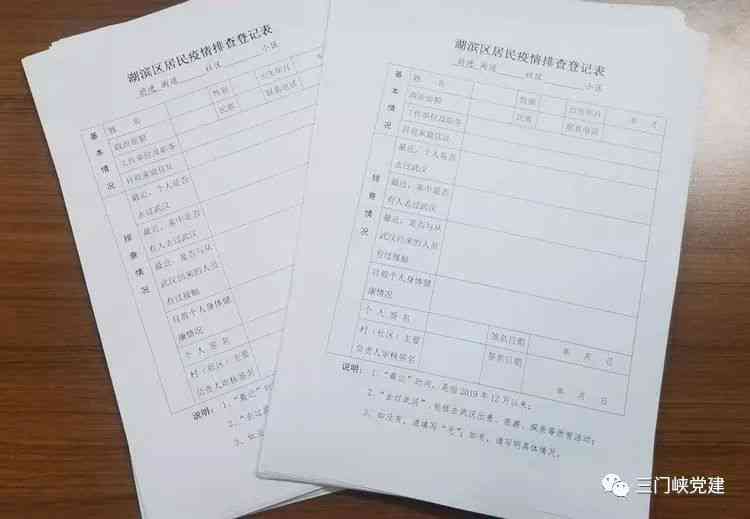 湖滨区居民疫情排查登记表
前进 街道 社区 小区
基本情况
姓 名
性别
出生年月
政治面貌
民族
联系电话
工作单位及职务
目前家庭住址
排查情况
最近,个人是否
去过武汉
最近,家中是否
有人去过武汉
最近,是否与从
武汉归来的人员
有过接触
目前个人身体健
康情况
个 人 签 名
村(社区)主要
负责人审核签名
说明:1、“最近”
2、“去过
3、如没
湖滨区居民疫情排查登记表
前进 街道 社区 小区
基本情况
姓 名
性别
出生年月
年 月
政治面貌
民族
联系电话
工作单位及职务
目前家庭住址
排查情况
最近,个人是否
去过武汉
最近,家中是否
有人去过武汉
最近,是否与从
武汉归来的人员
有过接触
目前个人身体健
康情况
个 人 签 名
签名日期
年 月 日
村(社区)主要
负责人审核签名
签名日期
年 月 日
说明:1、“最近”时间,是指2019年12月以来;
2、“去过武汉”,包括去武汉出差、旅游、探亲等所有活动;
3、如没有,请填写“无”;如有,请写明具体情况。
三门峡党建